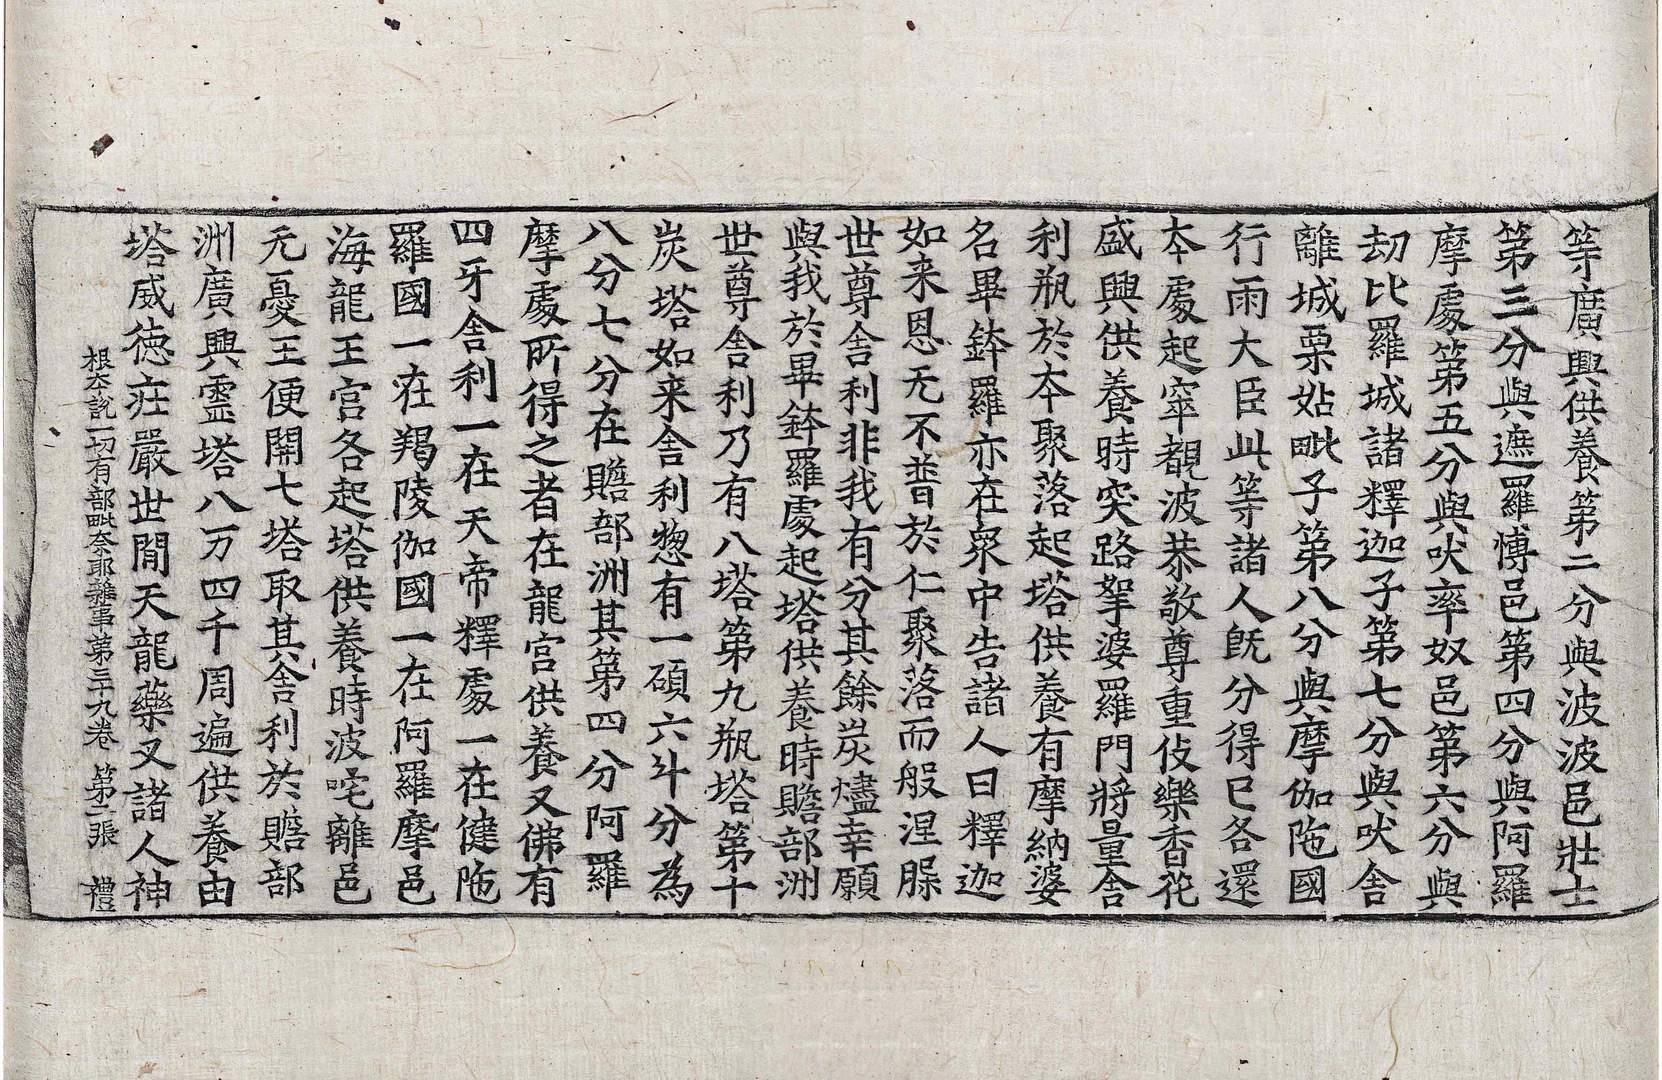 等廣興供養第二分與波波邑壯士
第三分與遮羅博邑第四分與阿羅
摩處第五分與吠率奴邑第六分與
劫比羅城諸釋迦子第七分與吠舍
離城栗姑毗子第八分與摩伽陁國
行雨大臣此等諸人旣分得已各還
本處起窣覩波恭敬尊重伎樂香花
盛興供養時突路拏婆羅門將量舍
利瓶於本聚落起塔供養有摩納婆
名畢鉢羅亦在衆中告諸人曰釋迦
如来恩无不普於仁聚落而般涅脲
世尊舍利非我有分其餘炭燼幸願
與我於畢鉢羅處起塔供養時贍部洲
世尊舍利乃有八塔第九瓶塔第十
炭塔如来舍利惣有一碩六斗分為
八分七分在贍部洲其第四分阿羅
摩處所得之者在龍宮供養又佛有
四牙舍利一在天帝釋處一在健陁
羅國一在羯陵伽國一在阿羅摩邑
海龍王宮各起塔供養時波吒離邑
无憂王便開七塔取其舍利於贍部
洲廣興靈塔八万四千周遍供養由
塔威德莊嚴世閒天龍藥叉諸人神
根本說一切有部毗奈耶雜事第三十九卷 第二張 禮